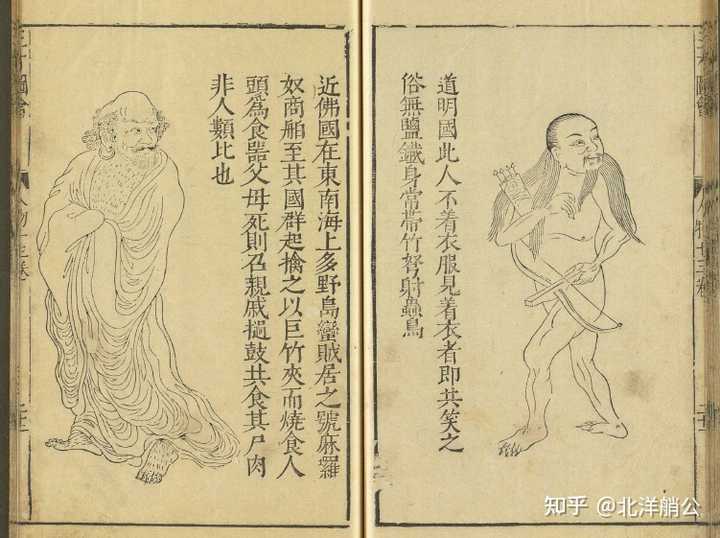 三才圖會
道明國此人不着衣服見着衣者即共笑之
俗無鹽鐵身常帶竹弩射蟲鳥
近佛國在東南海上多野島蠻賊居之號麻羅
奴商舶至其國群起擒之以巨竹夾而燒食人
頭爲食器父母死則召親戚槌鼓共食其尸肉
非人類比也
三才圖會
知乎 @北洋艄公